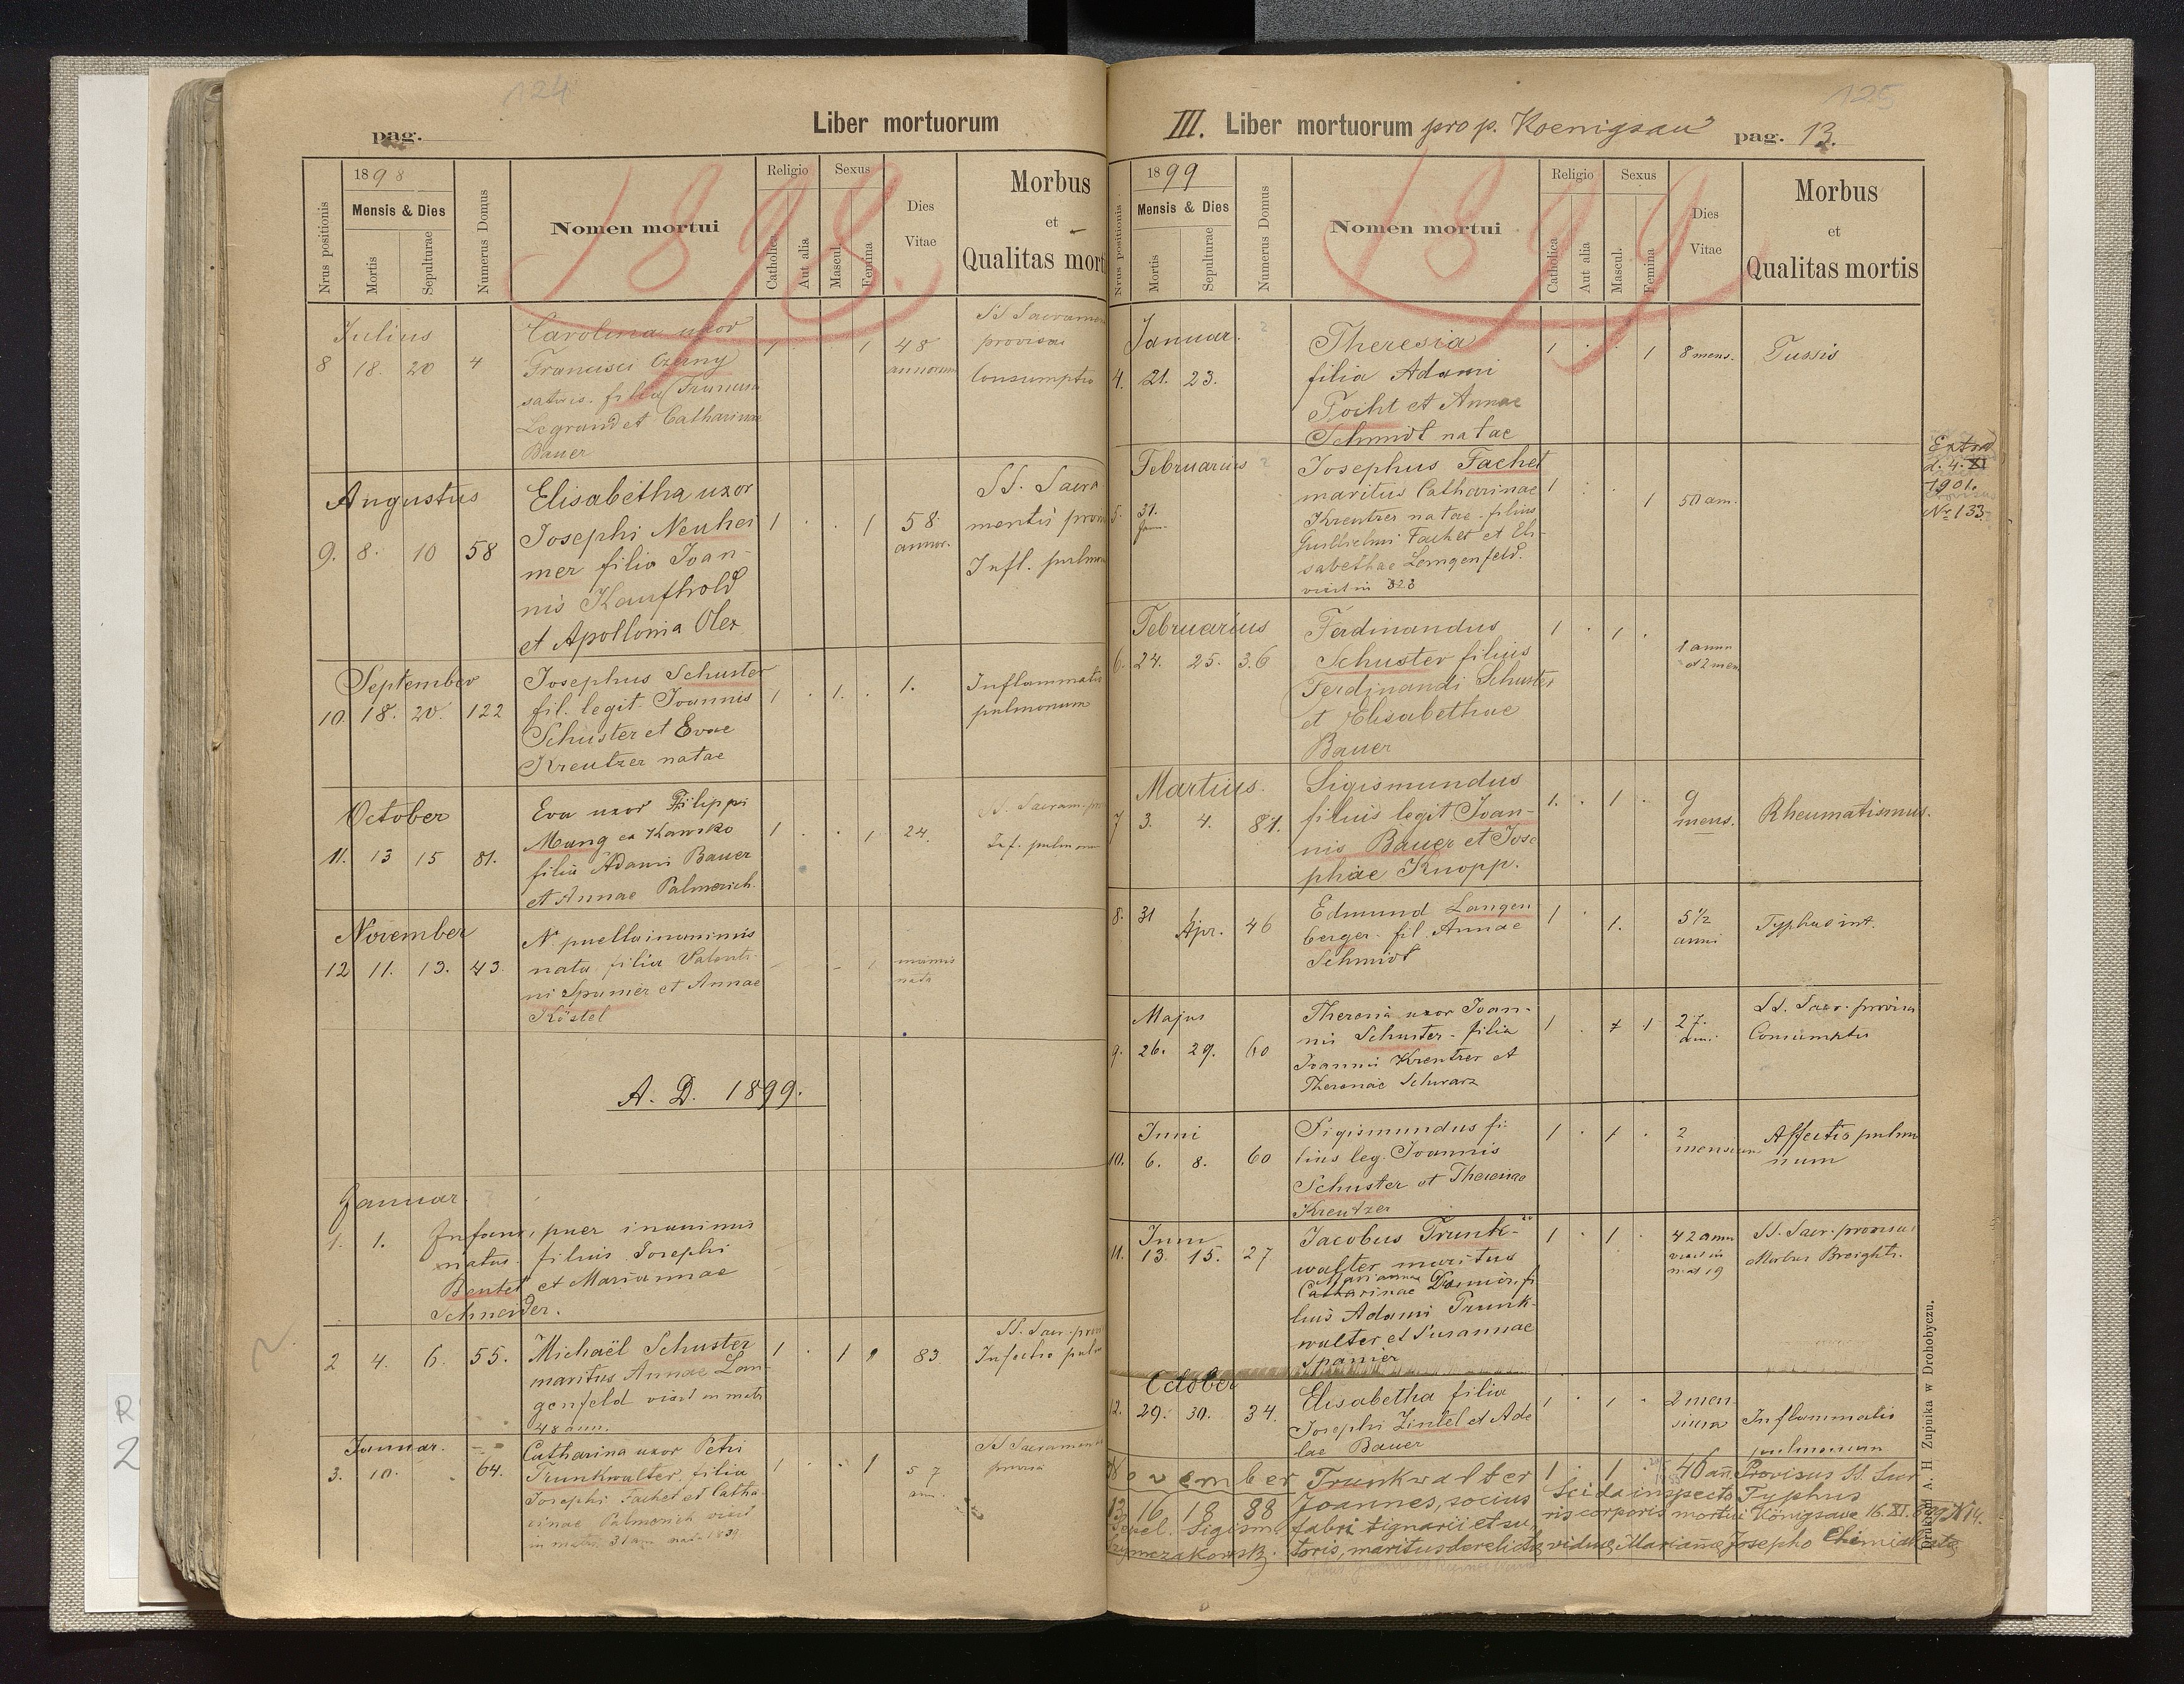 124
pag.
Liber mortuorum
1898.
1898
Mensis & Dies
Nrus positionis
Mortis
Sepulturae
Numerus Domus
Nomen mortui
Religio
Catholica
Aut alia
Sexus
Mascul.
Femina
Dies
Vitae
Morbus
et
Qualitas mort
Julius
8 18. 20 4
Carolina uxor
Francisci Czerny
filia
Legrand et Catharinae
Bauer
1 1 48
annorum
SS Sacramen
provisa
Consumptio
Augustus
9. 8. 10 58
Elisabetha uxor
Josephi Neuhei
mer filia Joan-
nis Kaufhold
et Apollonia Olex
1 . . 1 58
annor.
SS. Sacra
mentis provi
Infl. pulmon
September
10 18. 20. 122
Josephus Schuster
fil. legit. Joannis
Schuster et Evae
Kreutzer natae
1 . 1. . 1.
Inflammatio
pulmonum
October
11. 13 15 81.
Eva uxor Filippi
Mang ex Kawsko
filia Adami Bauer
et Annae Palmerich.
1 . . 1 24.
SS. Sacram. pr
Inf. pulmon
November
12 11. 13. 43.
N. puella inanimis
nata filia Valenti-
ni Spanier et Annae
Köstel
- - 1
nata
A. D. 1899.
Januar.
1. 1.
Infans, puer inanimis
natus. filius Josephi
Bentel et Mariannae
Schneider.
2 4. 6. 55.
Michaël Schuster
maritus Annae Lan-
genfeld vixit in matr
48 ann.
1 . 1 83.
SS. Sacr. provi
Infectio pulm
Januar.
3. 10. . 64.
Catharina uxor Petri
Trunkwalter, filia
Josephi Fachet et Catha-
rinae Palmerich vixit
in matr. 31 ann nata 1839
1 . . 1 57
ann.
SS Sacramentis
provisa
125
III. Liber mortuorum pro p. Koenigsau pag. 13.
1899
1899
Mensis & Dies
Nrus positionis
Mortis
Sepulturae
Numerus Domus
Nomen mortui
Religio
Catholica
Aut alia
Sexus
Mascul.
Femina
Dies
Vitae
Morbus
et
Qualitas mortis
Januar.
4. 21. 23.
Theresia
filia Adami
Pocht et Annae
Schmidt natae
1 . . 1 8 mens.
Tussis
Februarius
5. 31.
Jann.
Josephus Fachet
maritus Catharinae
Kreutzer natae. filius
Guilhelmi Fachet et Eli-
sabethae Langenfeld.
vixit in 328
1 . 1 50 ann.
Extrad
d. 4. XI
1901.
Nr 133.
Februarius
6. 24. 25. 36
Ferdinandus
Schuster filius
Ferdinandi Schuster
et Elisabethae
Bauer
1 . 1 .
1 ann
et 2 men
Martius.
7 3. 4. 81.
Sigismundus
filius legit. Joan-
nis Bauer et Jose
phae Knopp.
1. . 1 .
9
mens.
Rheumatismus.
8. 31 1
Apr. 46
Edmund Langen
berger. fil. Annae
Schmidt
1 . 1.
5 1/2
anni
Typhus int.
Majus
9. 26. 29. 60
Theresia uxor Joan-
nis Schuster. filia
Joannis Kreutzer et
Theresiae Schwarz
1 . 1 27.
ann.
SS. Sacr. provisa
Consumptio
Juni
10. 6. 8. 60
Sigismundus fi-
lius leg. Joannis
Schuster et Theresiae
Kreutzer
1 . 1 .
2
mensium
Affectio pulmo
num
Juni
11. 13. 15. 27
Jacobus Trunk-
walter maritus
Mariannae
Catharinae Damer. fi
lius Adami Trunk-
walter et Susannae
Spanier
1 . 1 . 42 ann
vixit in
mat 19
SS. Sacr. provisus
Morbus Breighti.
October
12. 29. 30. 34.
Elisabetha filia
Josephi Zintel et Ade
lae Bauer
1 . 1 .
2 men
sium
Inflammatio
pulmonum
November Trunkwalter 1 . 1 . 46 añ. Provisus SS. Sacr
13. 16 18 88 Joannes, socius Scida inspecto Typhus
Sepel. Sigism. fabri tignarii et su- ris corporis mortui Königsau 16. XI. 899 N 14.
toris, maritus derelictae viduae Mariañae Josepho
Drukiem A. H Zupnika w Drohobyczu.